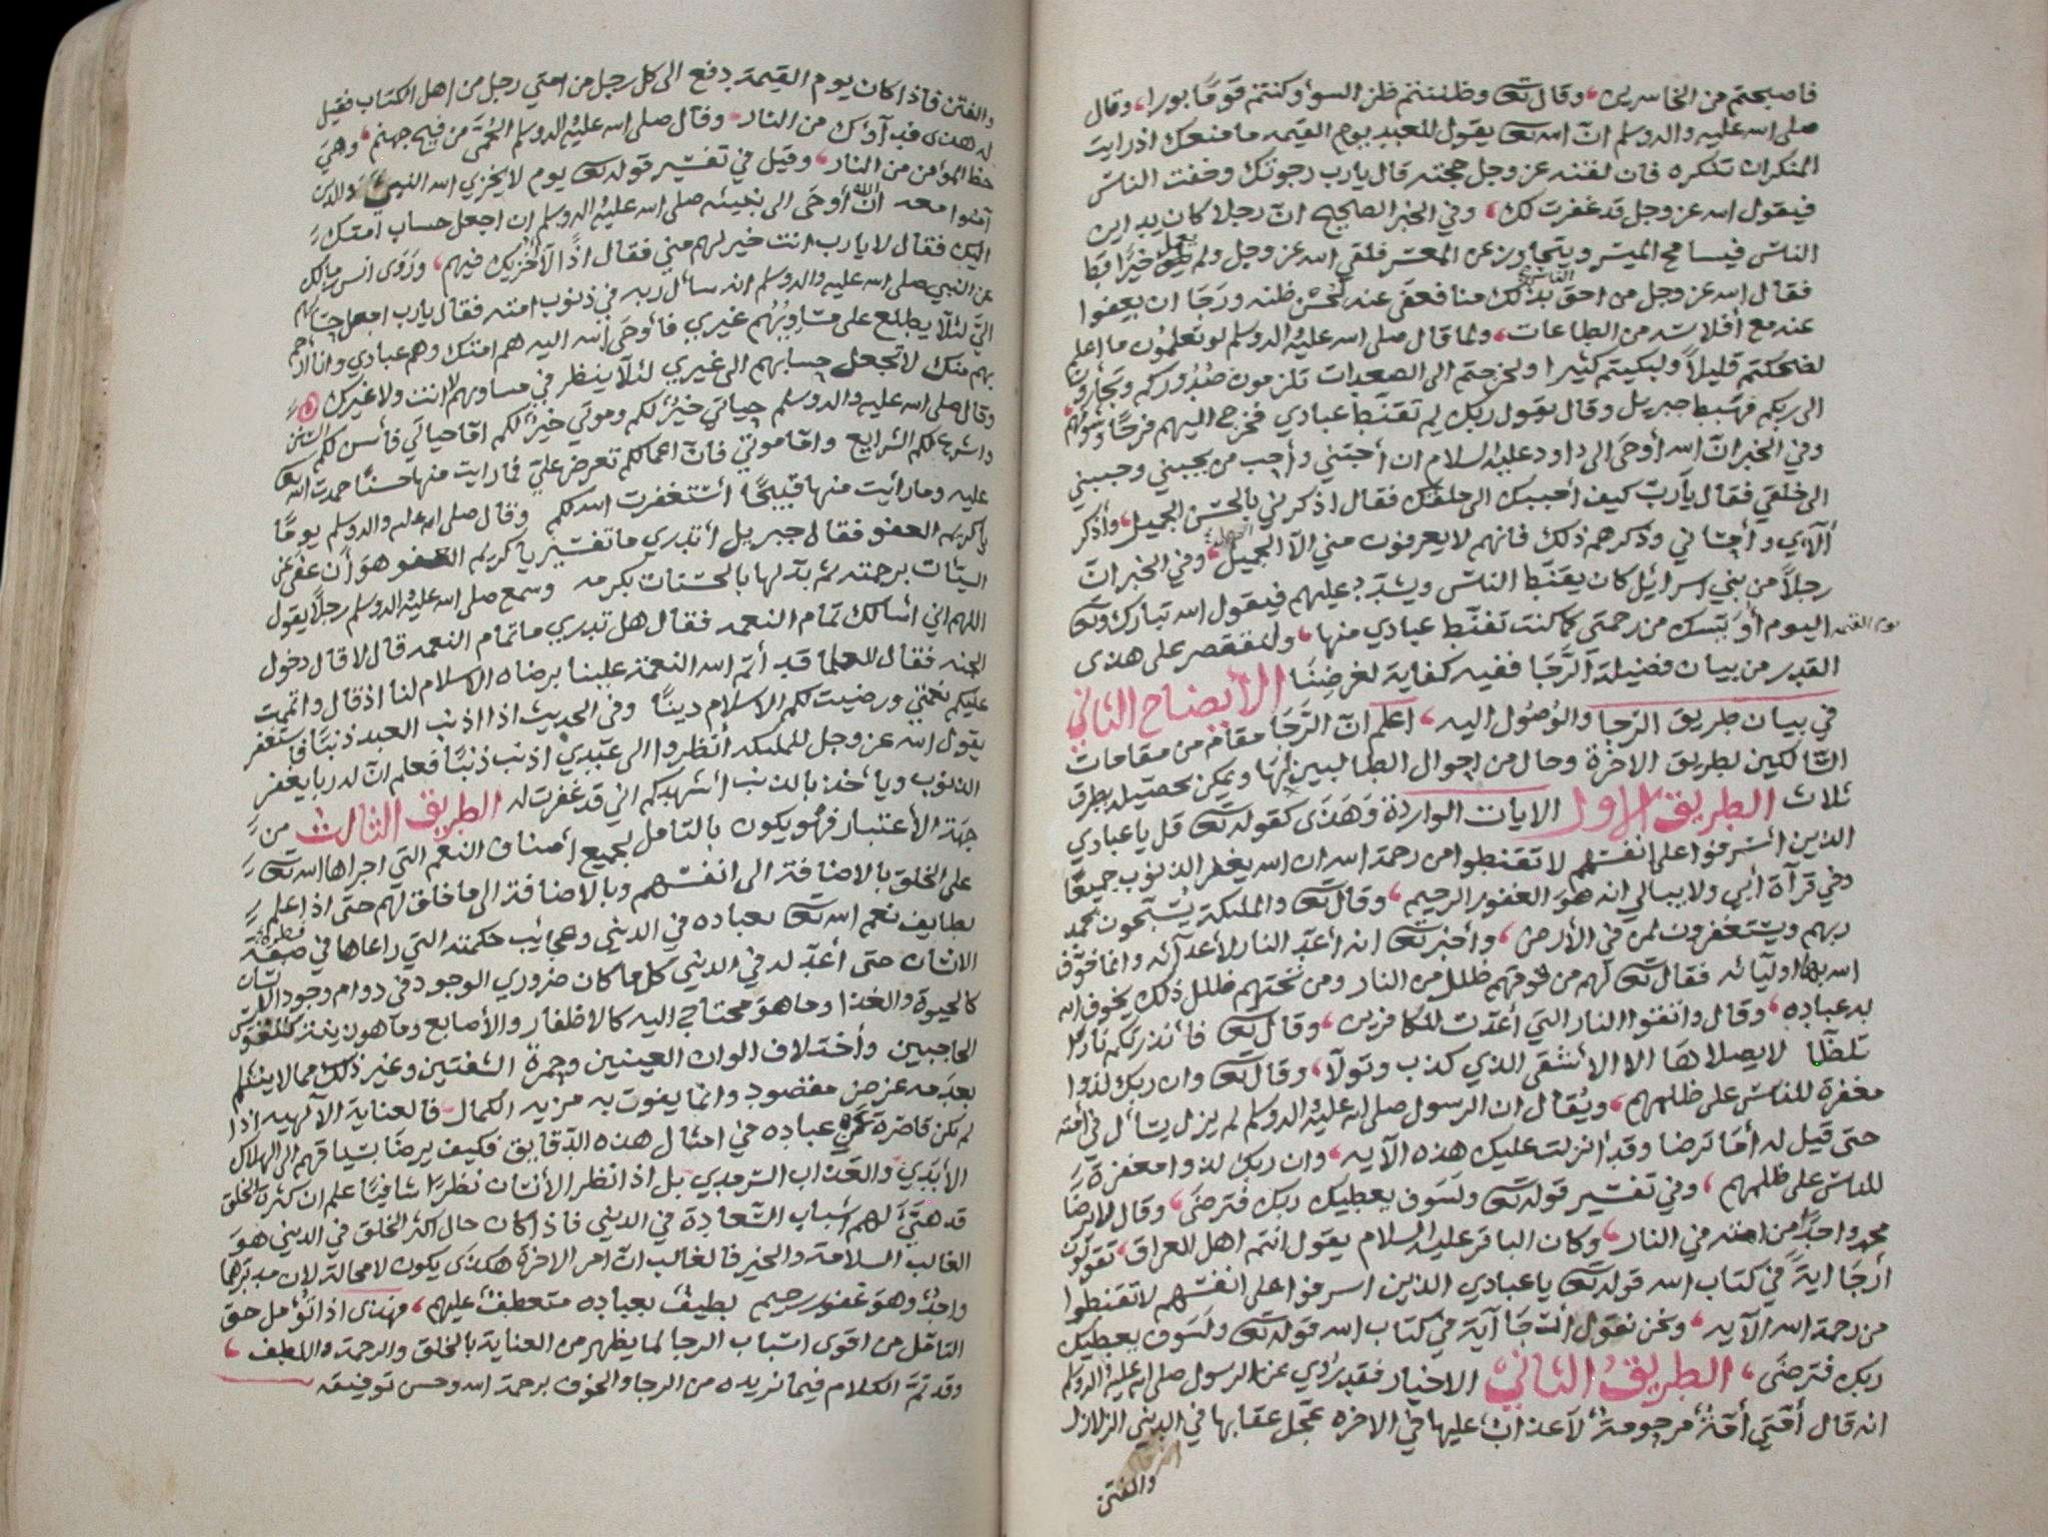 فاصبحتم من الخاسرين، وقال تعه وظننتم ظن السوء وكنتم قومًا بورا، وقال
صلى الله عليه واله وسلم انّ الله تعه يقول للعبد يوم القيمه ما منعك اذ رايت
المنكر ان تنكره فان لقنه عز وجل حجته قال يارب رجوتك وخفت الناس
فيقول الله عز وجل قد غفرت لك، وفي الخبر الصحيح انّ رجلا كان يداين
الناس فيسامح الميسر ويتجاوز عن المعسر فلقي الله عز وجل ولم يعمل خيرًا قط
فقال الله عز وجل من احق بذلك منا فعفى عنه لحسن ظنه ورجا ان يعفوا
عنه مع افلاسه من الطاعات، ولما قال صلى الله عليه واله وسلم لو تعلمون ما اعلم
لضحكتم قليلاً ولبكيتم كثيرا ولخرجتم الى الصعدات تلزمون صدوركم وتجأرون
الى ربكم فهبط جبريل وقال يقول ربك لم تقنط عبادي فخرج اليهم فرجا وشوقهم
وفي الخبر انّ الله أوحى الى داود عليه السلام ان أحبّني وأحب من يحبني وحببني
الى خلقي فقال يارب كيف أحببك الى خلقك فقال اذكرني بالحسن الجميل، وأذكر
آلآئي وأحساني وذكرهم ذلك فانهم لا يعرفون مني الا الجميل، وفي الخبر انّ
رجلاً من بني اسرائيل كان يقنّط الناس ويشدّد عليهم فيقول الله تبارك وتعه
يوم القيمه اليوم أويسك من رحمتي كما كنت تقنّط عبادي منها، ولنقتصر على هذى
القدر من بيان فضيلة الرّجا ففيه كفاية لغرضنا الأيضاح الثاني
في بيان طريق الرّجا والوصول اليه، اعلم انّ الرّجا مقام من مقامات
السّالكين لطريق الاخرة وحال من احوال الطالبين لها ويمكن تحصيله بطرق
ثلاث الطريق الاول الايات الواردة وهذى كقوله تعه قل يا عبادي
الذين أسرفوا على انفسهم لا تقنطوا من رحمة الله ان الله يغفر الذنوب جميعًا
وفي قرآة أبي ولا يبالي انه هو الغفور الرحيم، وقال تعه والمليكة يسبّحون بحمد
ربهم ويستغفرون لمن في الأرض، وأخبر تعه انه أعدّ النار لأعدآئه وانما خوّف
الله بها اوليآئه فقال تعه لهم من فوقهم ظلل من النار ومن تحتهم ظلل ذلك يخوف الله
به عباده، وقال واتقوا النار التي أعدّت للكافرين، وقال تعه فأنذرتكم نارًا
تلظّا لا يصلاها الا الاشقى الذي كذب وتولّا، وقال تعه وان ربك لذوا
مغفرة للناس على ظلمهم، ويقال ان الرسول صلى الله عليه واله وسلم لم يزل يسأل في أمته
حتى قيل له أما ترضا وقد انزلت عليك هذه الآيه، وان ربك لذوا مغفرة
للناس على ظلمهم، وفي تفسير قوله تعه ولسوف يعطيك ربك فترضى، وقال لا يرضا
محمد واحدًا من امته في النار، وكان الباقر عليه السلام يقول انتم اهل العراق، تقولون
أرجا اية في كتاب الله قوله تعه يا عبادي الذين اسرفوا على انفسهم لا تقنطوا
من رحمة الله الآيه، ونحن نقول أرجا آية في كتاب الله قوله تعه ولسوف يعطيك
ربك فترضى، الطريق الثاني الاخبار فقد روي عن الرسول صلى الله عليه واله وسلم
انه قال أمّتي أمّة مرحومة لا عذاب عليها في الاخره عجّل عقابها في الدنيى الزلازل
والفتن
والفتن فاذا كان يوم القيمة دفع الى كل رجل من امتي رجل من اهل الكتاب فقيل
له هذى فدآؤك من النار، وقال صلى الله عليه واله وسلم الحمّى من فيح جهنم، وهي
حظ المؤمن من النار، وقيل في تفسير قوله تعه يوم لا يخزي الله النبي والذين
آمنوا معه انّ الله أوحى الى نبيئه صلى الله عليه واله وسلم ان اجعل حساب امتك
اليك فقال لا يارب انت خير لهم مني فقال اذًا لا نخزيك فيهم، وروى انس بن مالك
عن النبي صلى الله عليه واله وسلم انه سأل ربه في ذنوب امته فقال يارب اجعل حسابهم
اليّ لئلا يطلع على مساويهم غيري فأوحى الله اليه هم امتك وهم عبادي وانا أرحم
بهم منك لا تجعل حسابهم الى غيري لئلا ينظر في مساويهم لا انت ولا غيرك
وقال صلى الله عليه واله وسلم حياتي خير لكم وموتي خير لكم امّا حياتي فأسن لكم السنن
واشرع لكم الشرايع وامّا موتي فانّ اعمالكم تعرض عليّ فما رايت منها حسنًا حمدت الله تعه
عليه وما رأيت منها قبيحًا أستغفرت الله لكم وقال صلى الله عليه واله وسلم يومًا
يا كريم العفو فقال جبريل أتدري ما تفسير يا كريم العفو هو أن عفى عن
السيئات برحمته ثم بدّلها بالحسنات بكرمه وسمع صلى الله عليه واله وسلم رجلاً يقول
اللهم اني أسالك تمام النعمه فقال هل تدري ما تمام النعمه قال لا قال دخول
الجنه فقال العلما قد أتم الله النعمة علينا برضاه الاسلام لنا اذ قال واتممت
عليكم نعمتي ورضيت لكم الاسلام دينًا وفي الحديث اذا اذنب العبد ذنبًا فاستغفر
يقول الله عز وجل للمليكه أنظروا الى عبدي اذنب ذنبًا فعلم انّ له ربا يغفر
الذنوب ويأخذ بالذنب أشهدكم اني قد غفرت له الطريق الثالث من
جهة الأعتبار فهو يكون بالتأمل لجميع أصناف النعم التي اجراها الله تعه
على الخلق بالاضافة الى انفسهم وبالاضافة الى ما خلق لهم حتى اذا علم
لطايف نعم الله تعه لعباده في الدنيى وعجايب حكمته التي راعاها في فطرة
الانسان حتى أعدّ له في الدنيى كل ما كان ضروري الوجود في دوام وجود الانسان
كالحيوة والغذا وما هو محتاج اليه كالاظفار والأصابع وما هو زينة كتقويس
الحاجبين وأختلاف الوان العينين وحمرة الشفتين وغير ذلك مما لا ينثلم
بعدمه غرض مقصود وانما يفوت به مزيه الكمال فالعناية الآلهيه اذا
لم تكن قاصرة عن عباده في امثال هذه الدّقايق فكيف يرضا بسياقهم الى الهلاك
الأبدي والعذاب السرمدي بل اذا نظر الأنسان نظرًا شافيًا علم ان كثر الخلق
قد هيّئ لهم أسباب السّعادة في الدنيى فاذا كان حال اكثر الخلق في الدنيى هو
الغالب السلامة والخير فالغالب انّ امر الاخرة هكذى يكون لا محالة لان مدبرهما
واحد وهو غفور رحيم لطيف بعباده متعطف عليهم، فهذى اذا تؤمل حق
التأمّل من اقوى اسباب الرجا لما يظهر من العناية بالخلق والرحمة واللطف،
وقد تمّ الكلام فيما نريده من الرجا والخوف برحمة الله وحسن توفيقه